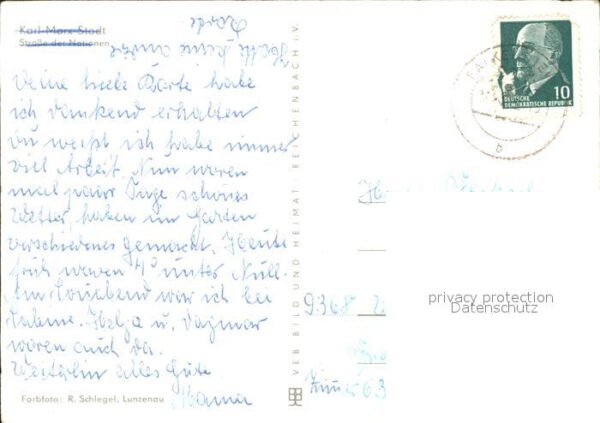 Karl-Marx-Stadt
Straße der Nationen
Hatte keine andre
Karte
Deine liebe Karte habe
ich dankend erhalten
Du weißt ich habe immer
viel Arbeit. Nun waren
mal paar Tage schönes
Wetter, haben im Garten
verschiedenes gemacht. Heute
früh waren 4° unter Null.
Am Sonnabend war ich bei
Helga u. Dagmar
waren auch da.
Weiterhin alles Gute
Mama
Farbfoto: R. Schlegel, Lunzenau
VEB BILD UND HEIMAT REICHENBACH I.V.
10
DEUTSCHE
DEMOKRATISCHE REPUBLIK
b
9368
563
privacy protection
Datenschutz